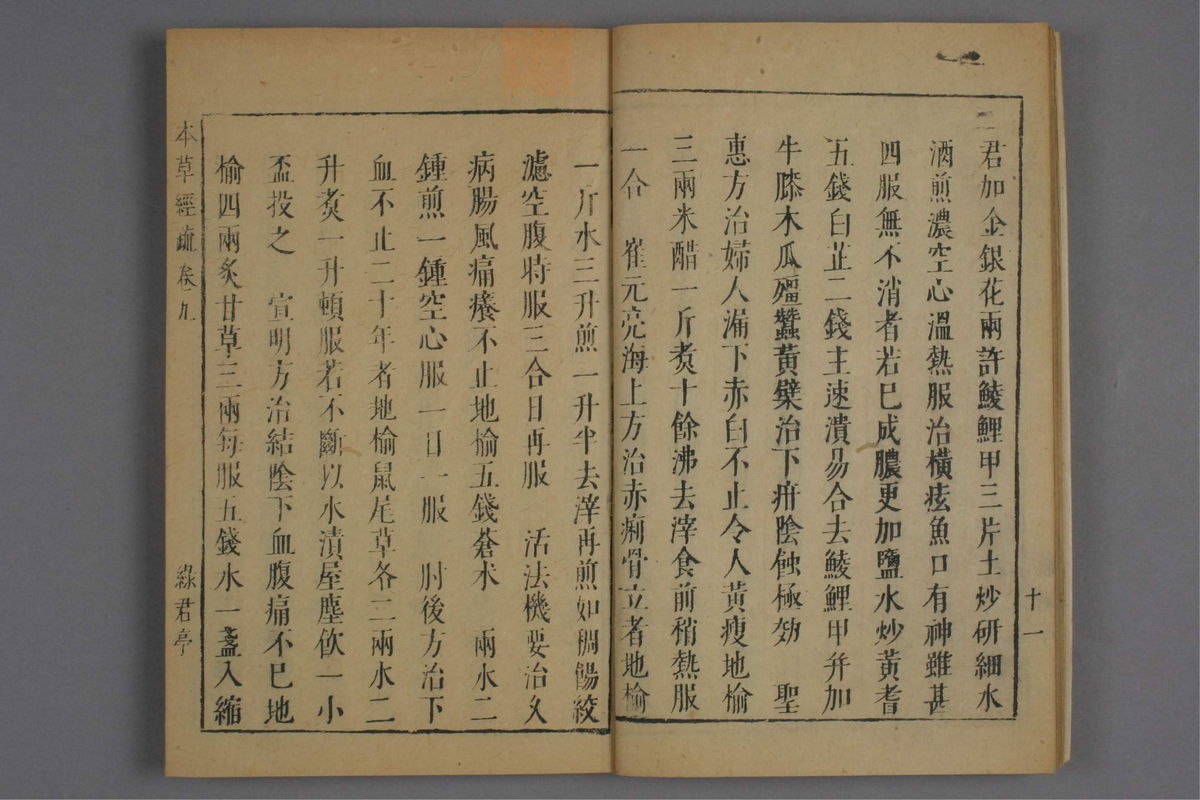 十一
君加金銀花兩許鯪鯉甲三片土炒研細水
酒煎濃空心溫熱服治橫痃魚口有神雖甚
四服無不消者若已成膿更加鹽水炒黃耆
五錢白芷二錢主速潰易合去鯪鯉甲并加
牛膝木瓜殭蠶黃檗治下疳陰蝕極効　聖
惠方治婦人漏下赤白不止令人黃瘦地榆
三兩米醋一斤煑十餘沸去滓食前稍熱服
一合　崔元亮海上方治赤痢骨立者地榆
一斤水三升煎一升半去滓再煎如稠餳絞
濾空腹時服三合日再服　活法機要治久
病腸風痛癢不止地榆五錢蒼术　兩水二
鍾煎一鍾空心服一日一服　肘後方治下
血不止二十年者地榆鼠尾草各二兩水二
升煑一升頓服若不斷以水漬屋塵飲一小
盃投之　宣明方治結陰下血腹痛不已地
榆四兩炙甘草三兩每服五錢水一盞入縮
本草經疏 卷九
綠君亭